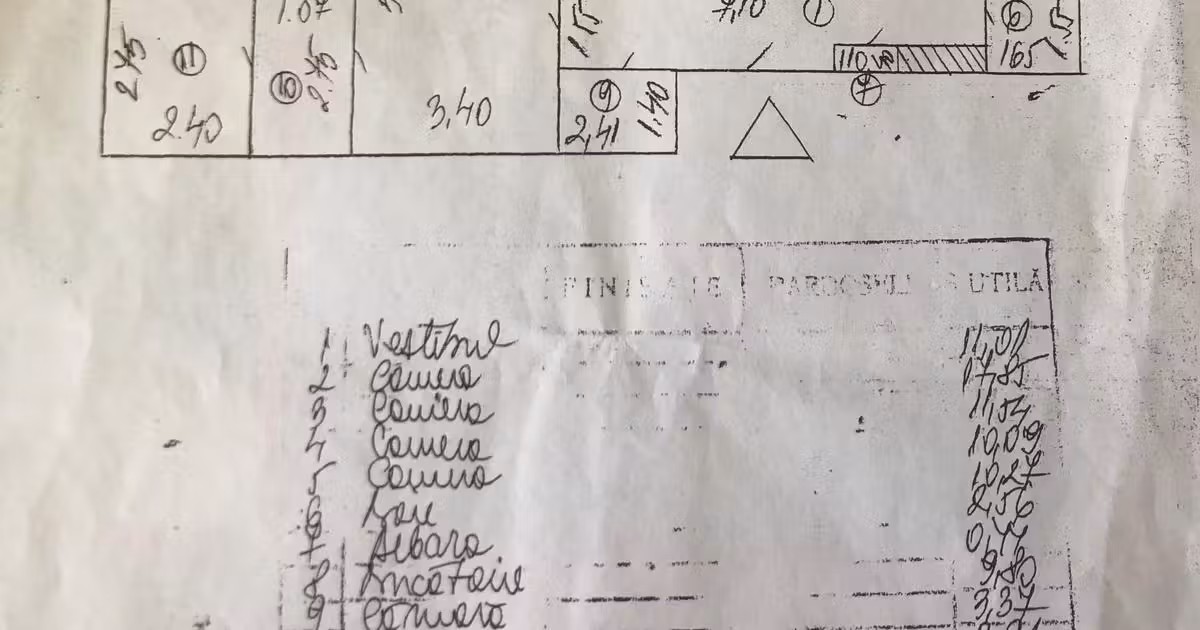 1.07
2.45
5
2.45
2.40
3,40
1.55
7,10
1
6
165
1.55
110
7
9
2,41
1.40
FINISAJE PARDOSELI S UTILĂ
1 Vestibul 11,01
2 Camera 17,85
3 Camera 11,54
4 Camera 10,09
5 Camera 10,27
6 2,56
7 Debara 0,77
8 9,85
9 Cămară 3,37